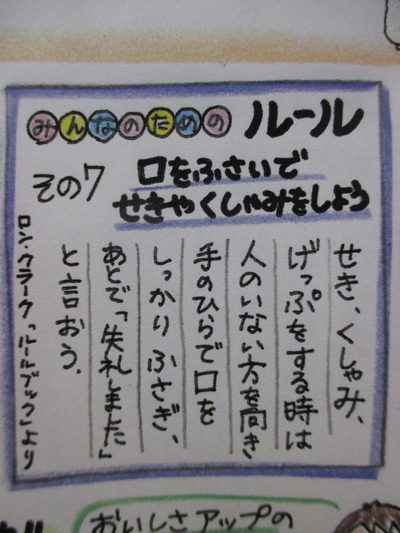 みんなのための ルール
その7
口をふさいで
せきやくしゃみをしよう
せき、くしゃみ、
げっぷをする時は
人のいない方を向き
手のひらで口を
しっかりふさぎ、
あとで「失礼しました」
と言おう.
ロン・クラーク「ルールブック」より
おいしさアップの